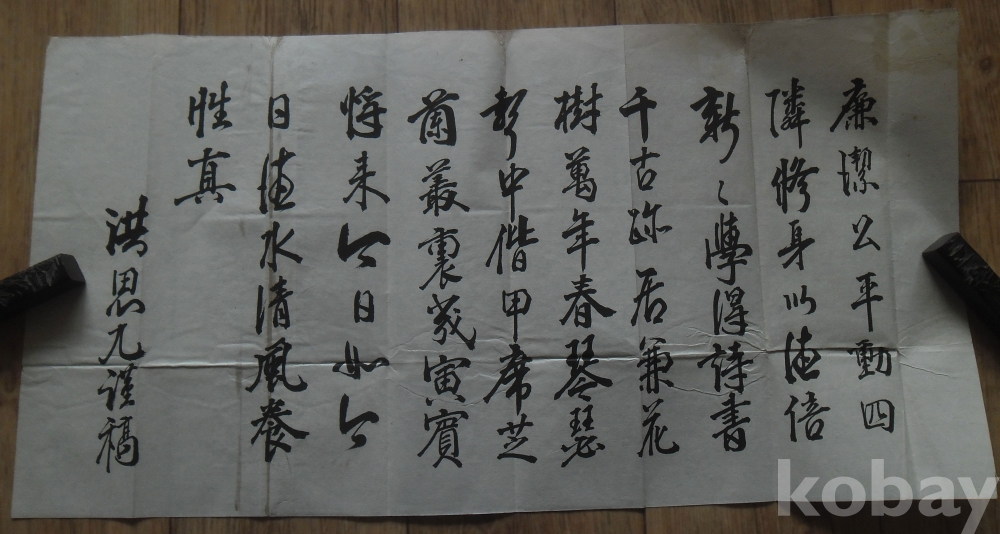 廉潔公平動四
隣修身以德倍
新〻學得詩書
千古跡居兼花
樹萬年春琴瑟
聲中偕甲席芝
蘭叢裏幾寅賓
將来今日如今
日德水清風養
性真
洪思九謹稿
kobay